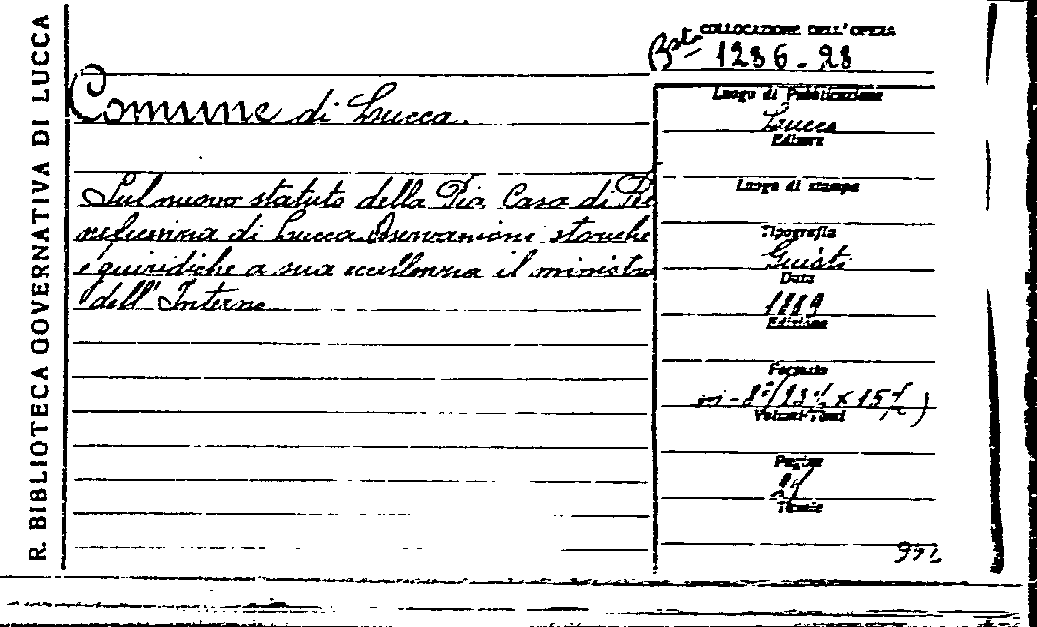 R. BIBLIOTECA GOVERNATIVA DI LUCCA
COLLOCAZIONE DELL'OPERA
Bsta 1236-28
Comune di Lucca.
Sul nuovo statuto della Pia Casa di Be
neficenza di Lucca Osservazioni storiche
e giuridiche a sua eccellenza il ministro
dell'Interno
Luogo di Pubblicazione
Lucca
Editore
Luogo di stampa
Tipografia
Giusti
Data
1889
Edizione
Formato
in-8°
Volumi-Tomi
Pagine